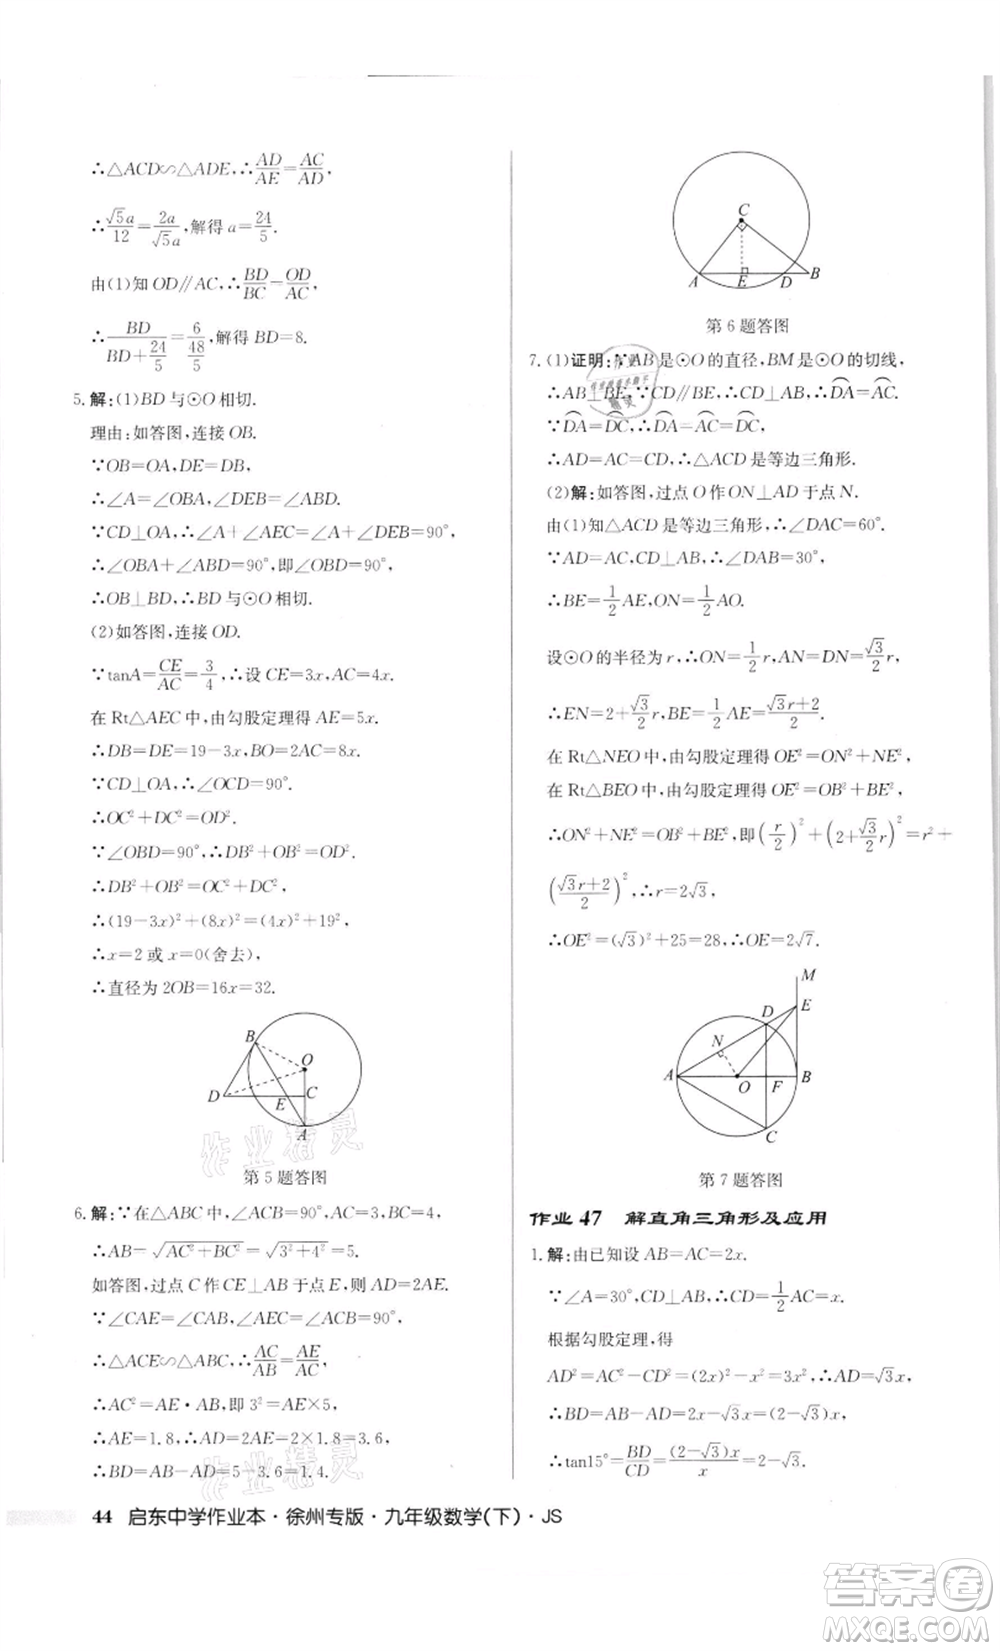 ∴△ACD∽△ADE,∴AD/AE=AC/AD
∴√5a/12=2a/√5a,解得a=24/5.
由(1)知OD∥AC,∴BD/BC=OD/AC
∴BD/(BD+24/5)=6/(48/5),解得BD=8.
5.解:(1)BD与⊙O相切.
理由:如答图,连接OB.
∵OB=OA,DE=DB,
∴∠A=∠OBA,∠DEB=∠ABD.
∵CD⊥OA,∴∠A+∠AEC=∠A+∠DEB=90°,
∴∠OBA+∠ABD=90°,即∠OBD=90°.
∴OB⊥BD,∴BD与⊙O相切.
(2)如答图,连接OD.
∵tanA=CE/AC=3/4,∴设CE=3x,AC=4x.
在Rt△AEC中,由勾股定理得AE=5x.
∴DB=DE=19-3x,BO=2AC=8x.
∵CD⊥OA,∴∠OCD=90°.
∴OC²+DC²=OD².
∵∠OBD=90°,∴DB²+OB²=OD².
∴DB²+OB²=OC²+DC².
∴(19-3x)²+(8x)²=(4x)²+19².
∴x=2或x=0(舍去).
∴直径为2OB=16x=32.
B
O
D
E
C
A
第5题答图
6.解:∵在△ABC中,∠ACB=90°,AC=3,BC=4,
∴AB=√(AC²+BC²)=√(3²+4²)=5.
如答图,过点C作CE⊥AB于点E,则AD=2AE.
∵∠CAE=∠CAB,∠AEC=∠ACB,
∴△ACE∽△ABC,∴AC/AB=AE/AC.
∴AC²=AE·AB,即3²=AE×5.
∴AE=1.8,∴AD=2AE=2×1.8=3.6,
∴BD=AB-AD=5-3.6=1.4.
C
A
E
D
B
第6题答图
7.(1)证明:∵AB是⊙O的直径,BM是⊙O的切线,
∴AB⊥BE.∵CD∥BE,∴CD⊥AB,∴DA⌒=AC⌒.
∵DA⌒=DC⌒,∴DA⌒=AC⌒=DC⌒,
∴AD=AC=CD,∴△ACD是等边三角形.
(2)解:如答图,过点O作ON⊥AD于点N.
由(1)知△ACD是等边三角形,∴∠DAC=60°.
∵AD=AC,CD⊥AB,∴∠DAB=30°,
∴BE=1/2AE,ON=1/2AO.
设⊙O的半径为r,∴ON=1/2r,AN=DN=√3/2r,
∴EN=2+√3/2r,BE=1/2AE=(√3r+2)/2.
在Rt△NEO中,由勾股定理得OE²=ON²+NE²,
在Rt△BEO中,由勾股定理得OE²=OB²+BE²,
∴ON²+NE²=OB²+BE²,即(r/2)²+(2+√3/2r)²=r²+
((√3r+2)/2)²,∴r=2√3,
∴OE²=(√3)²+25=28,∴OE=2√7.
M
D
E
N
A
O
F
B
C
第7题答图
作业47 解直角三角形及应用
1.解:由已知设AB=AC=2x.
∵∠A=30°,CD⊥AB,∴CD=1/2AC=x.
根据勾股定理,得
AD²=AC²-CD²=(2x)²-x²=3x²,∴AD=√3x,
∴BD=AB-AD=2x-√3x=(2-√3)x,
∴tan15°=BD/CD=(2-√3)x/x=2-√3.
44 启东中学作业本·徐州专版·九年级数学(下)·JS
作业精灵
作业精灵
答案卷
MXQE.COM